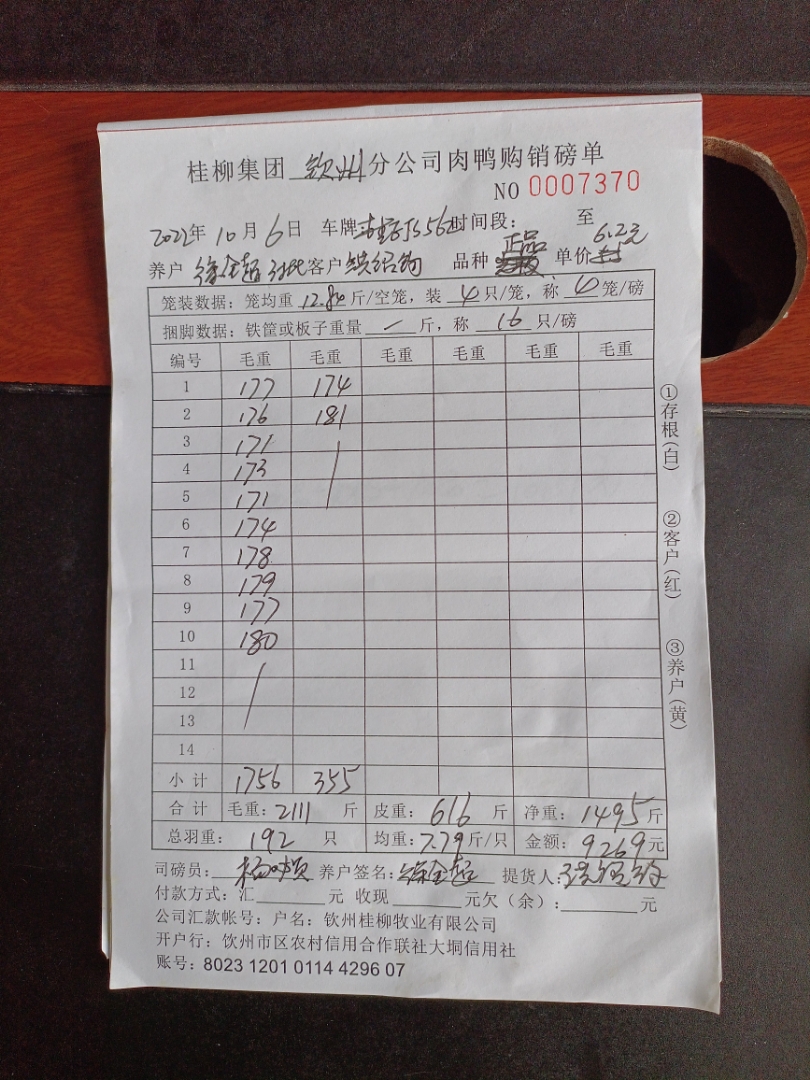 桂柳集团 钦州 分公司肉鸭购销磅单
NO 0007370
2022年 10月 6日 车牌 时间段： 至
养户 徐全超 客户 品种 正品 单价 6.2元
笼装数据：笼均重 12.84 斤/空笼，装 4 只/笼，称 4 笼/磅
捆脚数据：铁筐或板子重量 / 斤，称 16 只/磅
编号 毛重 毛重 毛重 毛重 毛重 毛重
1 177 174
2 176 181
3 171
4 173
5 171
6 174
7 178
8 179
9 177
10 180
11
12
13
14
小计 1756 355
合计 毛重：2111 斤 皮重：616 斤 净重：1495 斤
总羽重： 192 只 均重：7.79 斤/只 金额：9269 元
司磅员： 养户签名：徐全超 提货人：
付款方式：汇 元 收现 元欠（余）： 元
公司汇款帐号：户名：钦州桂柳牧业有限公司
开户行：钦州市区农村信用合作联社大垌信用社
账号：8023 1201 0114 4296 07
①存根（白）
②客户（红）
③养户（黄）